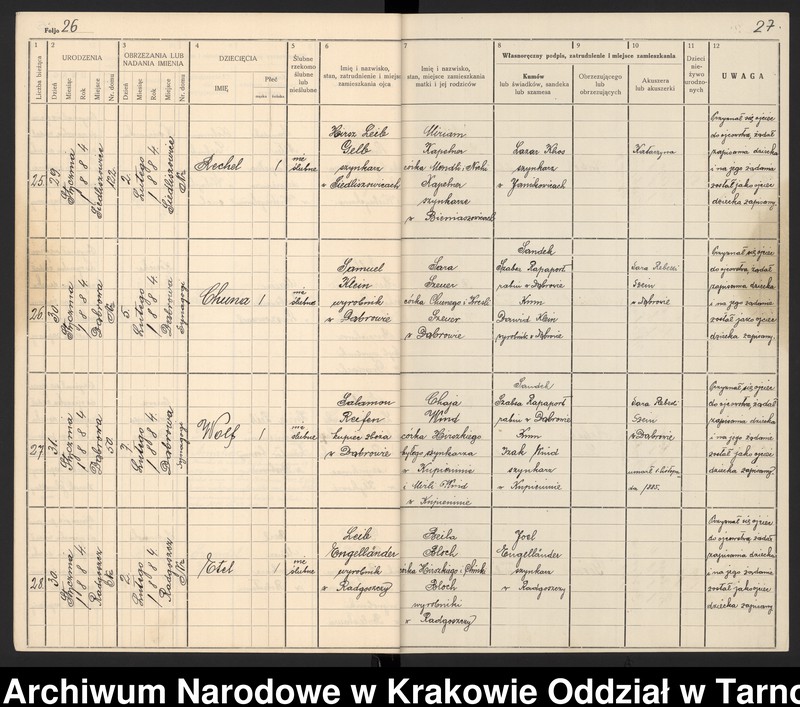 Foljo 26
27.
1
Liczba bieżąca
2
URODZENIA
Dzień
Miesiąc
Rok
Miejsce
Nr. domu
3
OBRZEZANIA LUB
NADANIA IMIENIA
Dzień
Miesiąc
Rok
Miejsce
Nr. domu
4
DZIECIĘCIA
IMIĘ
Płeć
męska
żeńska
5
Ślubne
rzekomo
ślubne
lub
nieślubne
6
Imię i nazwisko,
stan, zatrudnienie i miejsce
zamieszkania ojca
7
Imię i nazwisko,
stan, miejsce zamieszkania
matki i jej rodziców
Własnoręczny podpis, zatrudnienie i miejsce zamieszkania
8
Kumów
lub świadków, sandeka
lub szamesa
9
Obrzezującego
lub
obrzezujących
10
Akuszera
lub akuszerki
11
Dzieci
nie-
żywo
urodzo-
nych
12
UWAGA
25.
29.
Stycznia
1884
Siedliszowice
122
2.
Lutego
1884
Siedliszowice
Rechel
1
nie
ślubne
Hersz Leib
Gelb
szynkarz
w Siedliszowicach
Miriam
Kapelner
córka Mendli i Nechi
Kapelner
szynkarze
w Bieniaszowicach
Lazar Khos
szynkarz
w Janikowicach
Katarzyna
Przyznał się ojciec
do ojcostwa, żądał
zapisania dziecka
i na jego żądanie
został jako ojciec
dziecka zapisany.
26.
30.
Stycznia
1884
Dąbrowa
5.
Lutego
1884
Dąbrowa
Synagogi
Chuna
1
nie
ślubne
Samuel
Klein
wyrobnik
w Dąbrowie
Sara
Szewer
córka Chunego i
Szewer
w Dąbrowie
Sandek
Szabse Rapaport
rabin w Dąbrowie
Kum
Dawid Klein
wyrobnik w Dąbrowie
Sara Rebeci
Stein
w Dąbrowie
Przyznał się ojciec
do ojcostwa, żądał
zapisania dziecka
i na jego żądanie
został jako ojciec
dziecka zapisany.
27.
31.
Stycznia
1884
Dąbrowa
50
7.
Lutego
1884
Dąbrowa
Synagogi
Wolf
1
nie
ślubne
Salamon
Reifen
kupiec zboża
w Dąbrowie
Chaja
Wind
córka Herszkiego
byłego szynkarza
w Kupieninie
i Mirli Wind
w Kupieninie
Sandek
Szabse Rapaport
rabin w Dąbrowie
Kum
Izak Wind
szynkarz
w Kupieninie
Sara Rebeci
Stein
w Dąbrowie
umarł 1. listop.
1885.
Przyznał się ojciec
do ojcostwa, żądał
zapisania dziecka
i na jego żądanie
został jako ojciec
dziecka zapisany.
28.
30.
Stycznia
1884
Radgoszcz
2.
Lutego
1884
Radgoszcz
Etel
1
nie
ślubne
Leib
Engelländer
wyrobnik
w Radgoszczy
Beila
Bloch
córka Herszkiego i
Bloch
wyrobniki
w Radgoszczy
Joel
Engelländer
szynkarz
w Radgoszczy
Przyznał się ojciec
do ojcostwa, żądał
zapisania dziecka
i na jego żądanie
został jako ojciec
dziecka zapisany
Archiwum Narodowe w Krakowie Oddział w Tarno